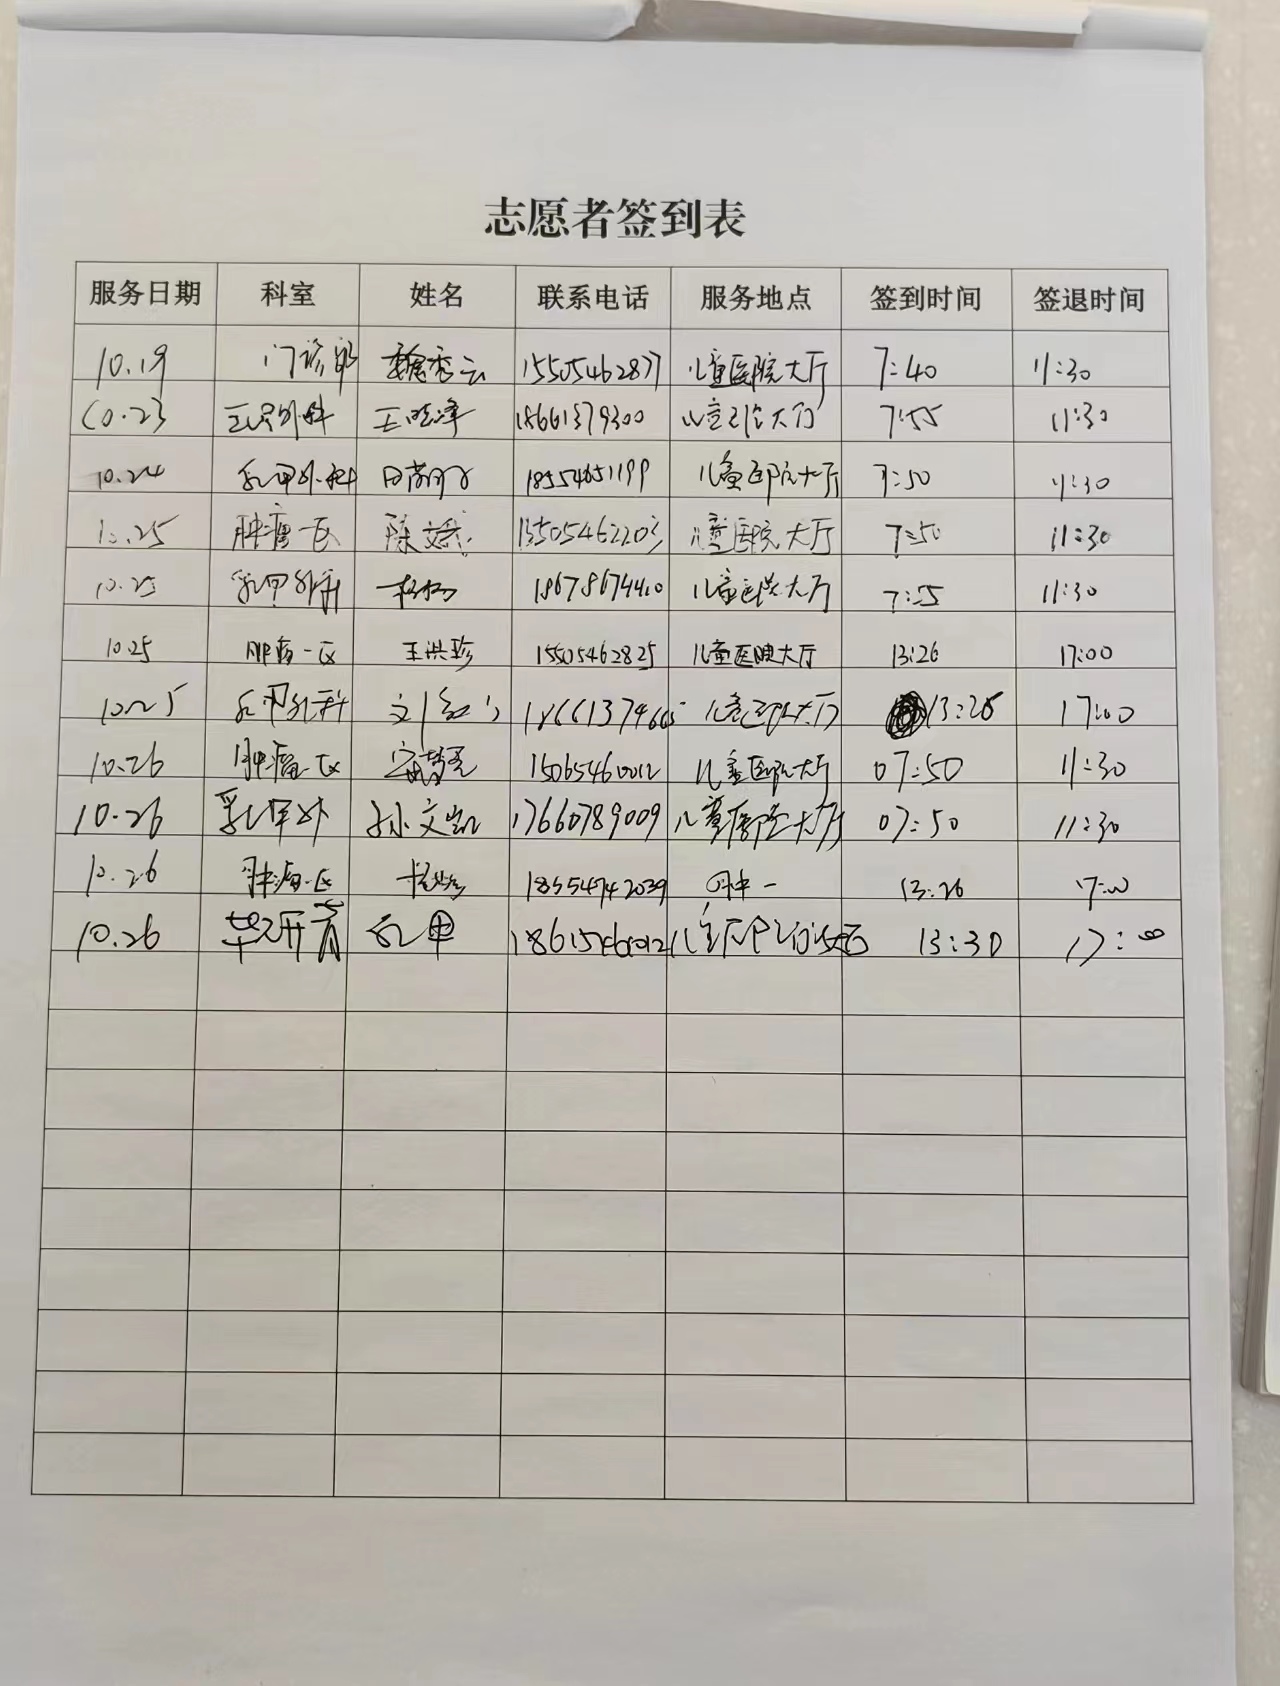 志愿者签到表
服务日期 科室 姓名 联系电话 服务地点 签到时间 签退时间
10.19 门诊部 魏秀云 15505462877 儿童医院大厅 7:40 11:30
10.23 18661379300 大厅 7:55 11:30
10.24 乳甲外科 18554651199 儿童医院大厅 7:50 11:30
10.25 肿瘤一区 陈文 13505462203 儿童医院大厅 7:50 11:30
10.25 乳甲外科 杨杨 18678674410 儿童医院大厅 7:55 11:30
10.25 肿瘤一区 王洪珍 15505462825 儿童医院大厅 13:26 17:00
10.25 乳甲外科 儿童医院大厅 17:00
10.26 肿瘤一区 15065460012 儿童医院大厅 07:50 11:30
10.26 乳甲外 孙文凯 17660789009 儿童医院大厅 07:50 11:30
10.26 肿瘤一区 18554742039 肿一 13:26 17:00
10.26 乳甲 13:30 17:00